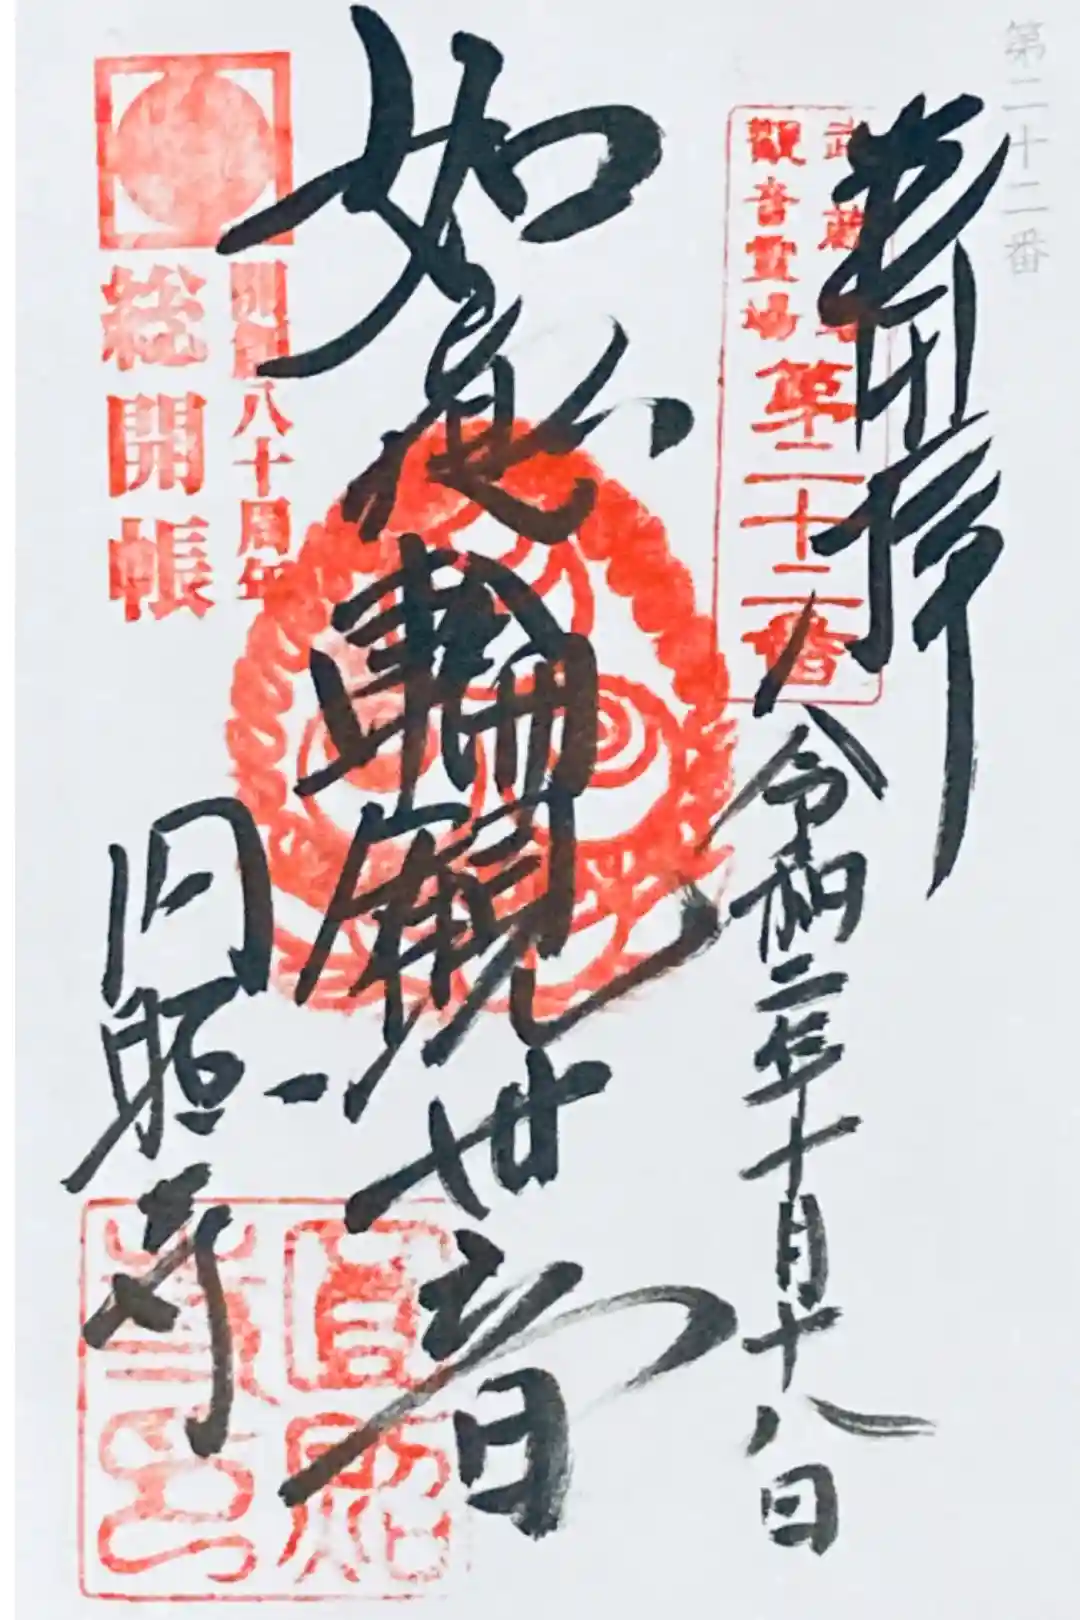 第二十二番
奉開拝
武蔵野
觀音靈場
第二十二番
令和二年十月十八日
如意輪観世音
開創八十周年
総開帳
円照寺
圓照
寺印